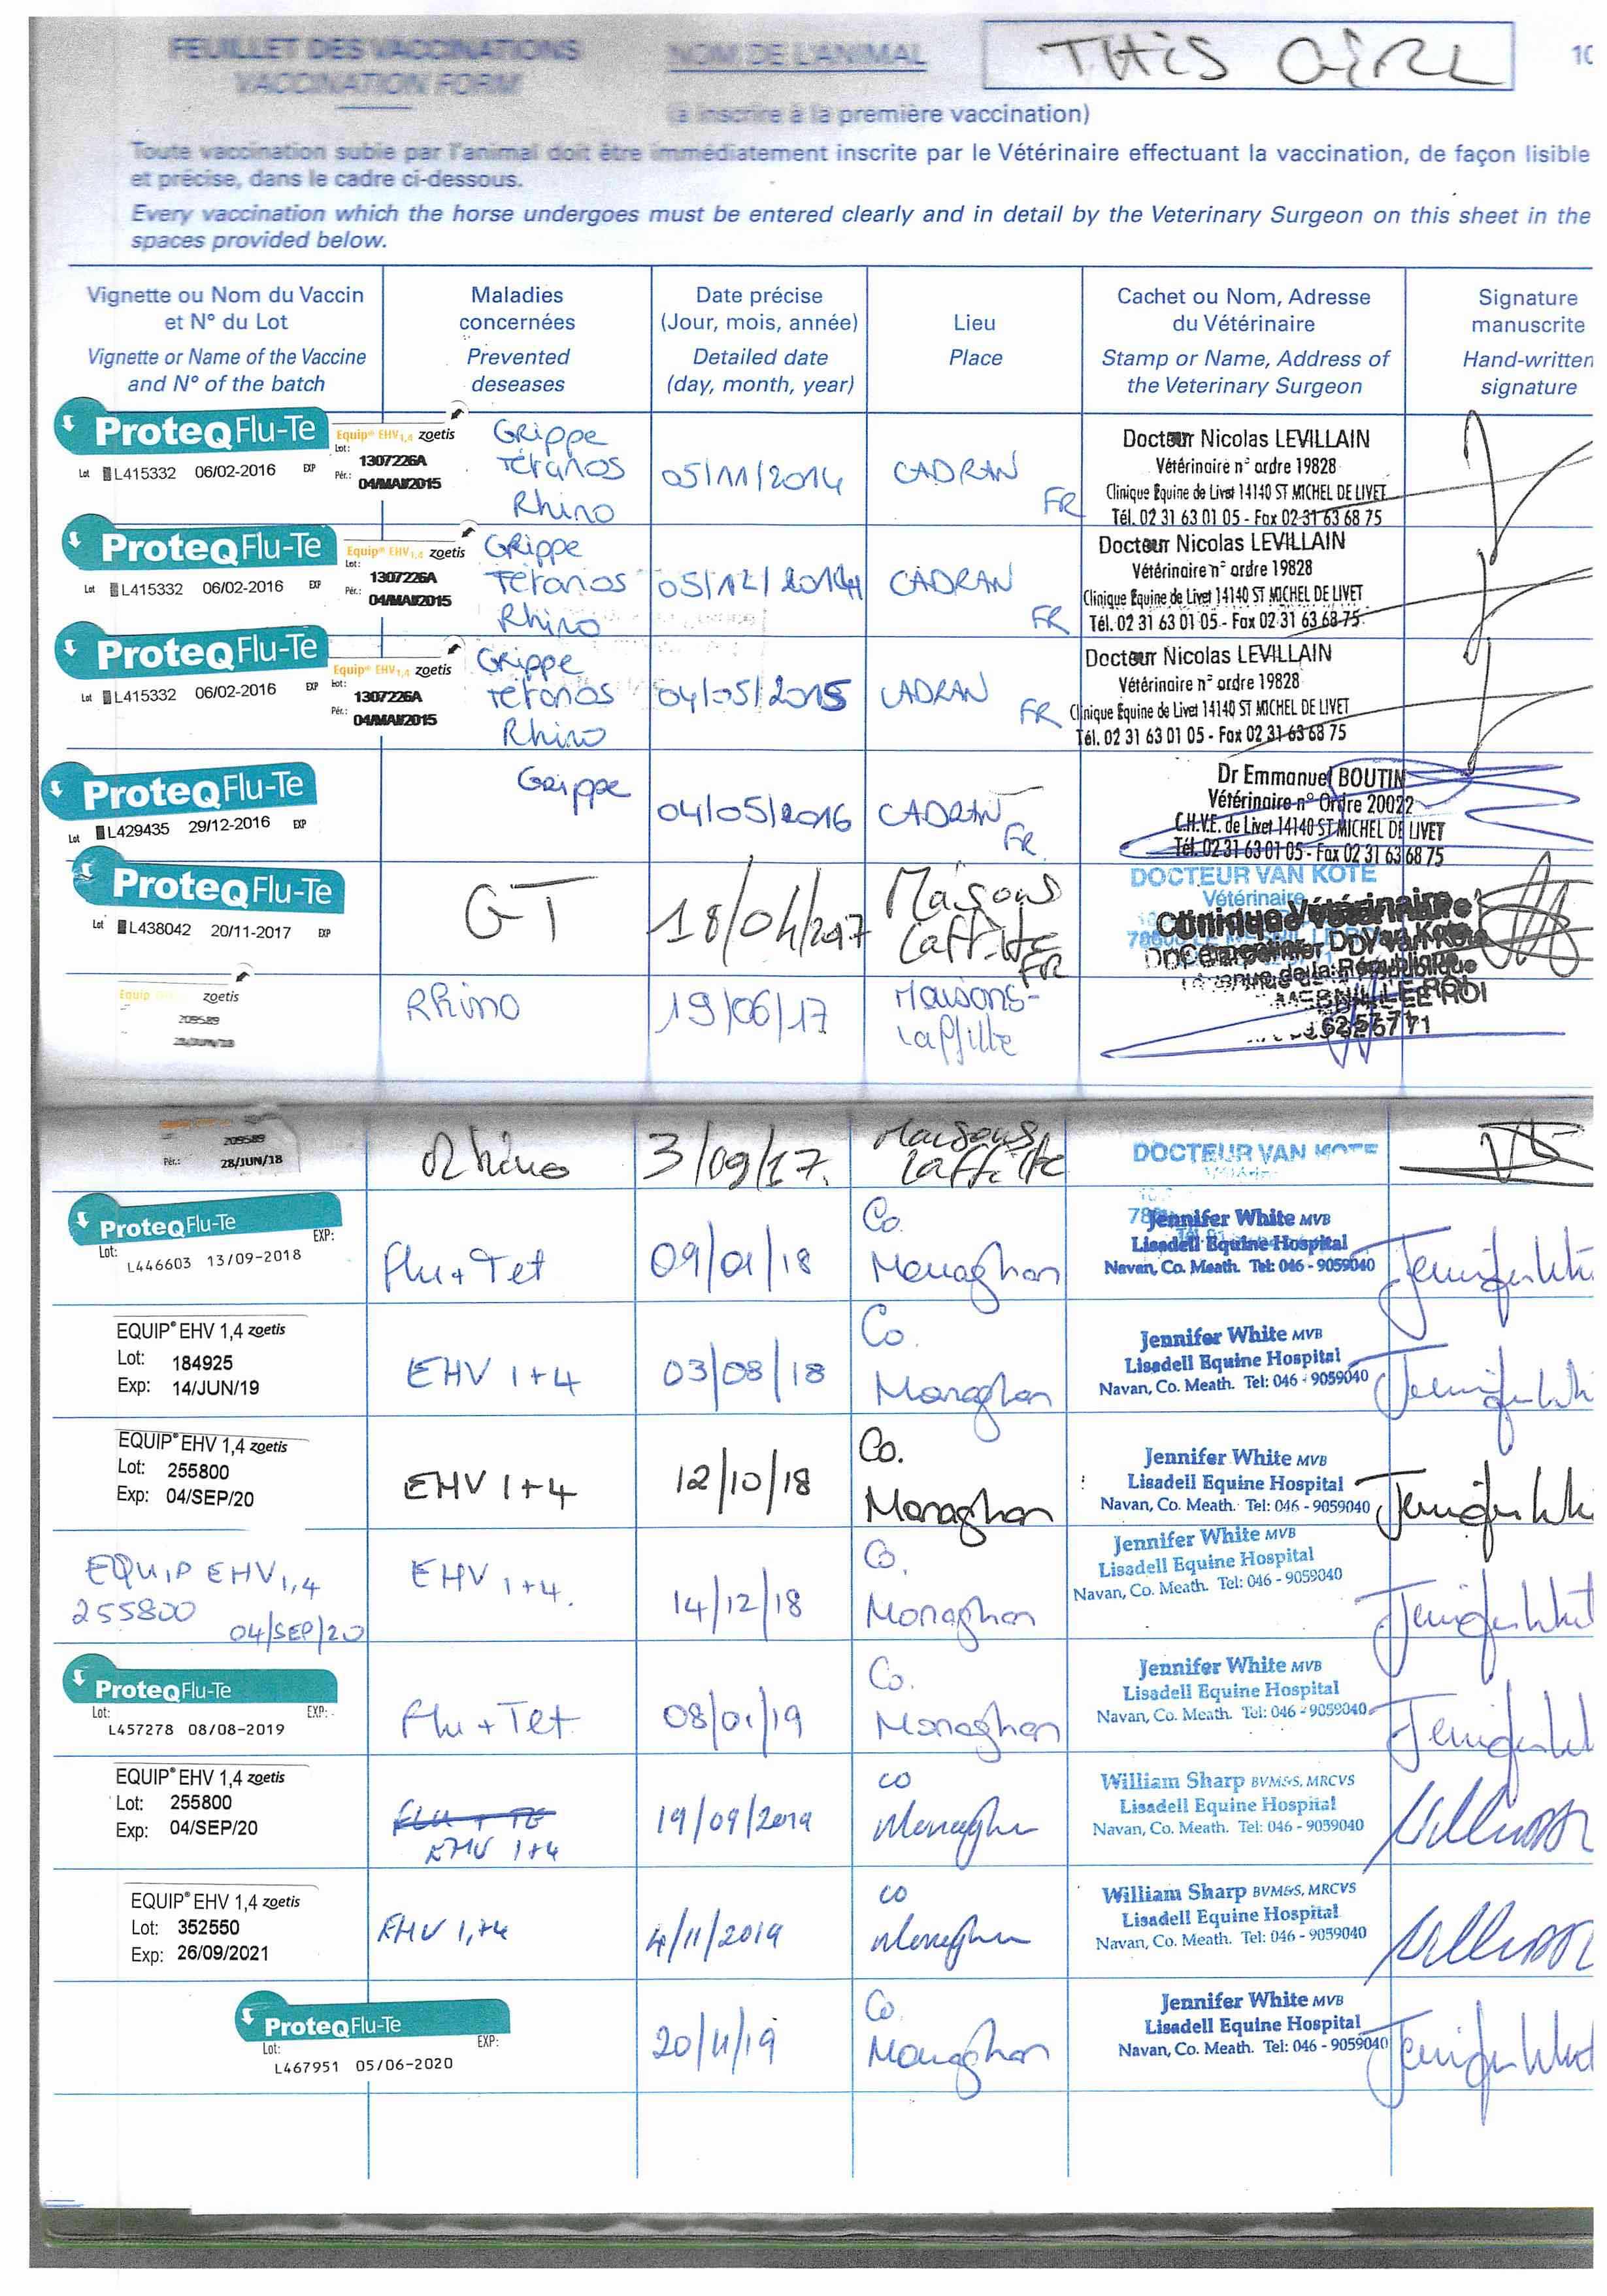 FEUILLET DES VACCINATIONS
VACCINATION FORM
NOM DE L'ANIMAL
THIS GIRL
10
(à inscrire à la première vaccination)
Toute vaccination subie par l'animal doit être immédiatement inscrite par le Vétérinaire effectuant la vaccination, de façon lisible
et précise, dans le cadre ci-dessous.
Every vaccination which the horse undergoes must be entered clearly and in detail by the Veterinary Surgeon on this sheet in the
spaces provided below.
Vignette ou Nom du Vaccin
et N° du Lot
Vignette or Name of the Vaccine
and N° of the batch
Maladies
concernées
Prevented
deseases
Date précise
(Jour, mois, année)
Detailed date
(day, month, year)
Lieu
Place
Cachet ou Nom, Adresse
du Vétérinaire
Stamp or Name, Address of
the Veterinary Surgeon
Signature
manuscrite
Hand-written
signature
ProteqFlu-Te
Lot L415332 06/02-2016 EXP
Equip® EHV1,4 zoetis
Lot:
1307226A
Pér.: 04/MAI/2015
Grippe
Tétanos
Rhino
05/11/2014
CADRAN
FR
Docteur Nicolas LEVILLAIN
Vétérinaire n° ordre 19828
Clinique Équine de Livet 14140 ST MICHEL DE LIVET
Tél. 02 31 63 01 05 - Fax 02 31 63 68 75
ProteqFlu-Te
Lot L415332 06/02-2016 EXP
Equip® EHV1,4 zoetis
Lot:
1307226A
Pér.: 04/MAI/2015
Grippe
Tétanos
Rhino
05/12/2014
CADRAN
FR
Docteur Nicolas LEVILLAIN
Vétérinaire n° ordre 19828
Clinique Équine de Livet 14140 ST MICHEL DE LIVET
Tél. 02 31 63 01 05 - Fax 02 31 63 68 75
ProteqFlu-Te
Lot L415332 06/02-2016 EXP
Equip® EHV1,4 zoetis
Lot:
1307226A
Pér.: 04/MAI/2015
Grippe
Tétanos
Rhino
04/05/2015
CADRAN
FR
Docteur Nicolas LEVILLAIN
Vétérinaire n° ordre 19828
Clinique Équine de Livet 14140 ST MICHEL DE LIVET
Tél. 02 31 63 01 05 - Fax 02 31 63 68 75
ProteqFlu-Te
Lot L429435 29/12-2016 EXP
Grippe
04/05/2016
CADRAN
FR
Dr Emmanuel BOUTIN
Vétérinaire n° Ordre 20022
C.H.V.E. de Livet 14140 ST MICHEL DE LIVET
Tél. 02 31 63 01 05 - Fax 02 31 63 68 75
ProteqFlu-Te
Lot L438042 20/11-2017 EXP
GT
18/04/2017
Maisons
Laffitte
FR
DOCTEUR VAN KOTE
Vétérinaire
Clinique Vétérinaire
Equip zoetis
209589
Rhino
19/06/17
Maisons-
Laffitte
209589
Pér.: 28/JUN/18
Rhino
3/09/17.
Maisons
Laffitte
DOCTEUR VAN KOTE
ProteqFlu-Te
Lot: EXP:
L446603 13/09-2018
Flu + Tet
09/01/18
Co.
Monaghan
Jennifer White MVB
Lisadell Equine Hospital
Navan, Co. Meath. Tel: 046 - 9059040
EQUIP® EHV 1,4 zoetis
Lot: 184925
Exp: 14/JUN/19
EHV 1+4
03/08/18
Co.
Monaghan
Jennifer White MVB
Lisadell Equine Hospital
Navan, Co. Meath. Tel: 046 - 9059040
EQUIP® EHV 1,4 zoetis
Lot: 255800
Exp: 04/SEP/20
EHV 1+4
12/10/18
Co.
Monaghan
Jennifer White MVB
Lisadell Equine Hospital
Navan, Co. Meath. Tel: 046 - 9059040
EQUIP EHV1,4
255800
04/SEP/20
EHV 1+4.
14/12/18
Co.
Monaghan
Jennifer White MVB
Lisadell Equine Hospital
Navan, Co. Meath. Tel: 046 - 9059040
ProteqFlu-Te
Lot: EXP:
L457278 08/08-2019
Flu + Tet
08/01/19
Co.
Monaghan
Jennifer White MVB
Lisadell Equine Hospital
Navan, Co. Meath. Tel: 046 - 9059040
EQUIP® EHV 1,4 zoetis
Lot: 255800
Exp: 04/SEP/20
FLU + TE
EHV 1+4
19/09/2019
CO
Monaghan
William Sharp BVM&S, MRCVS
Lisadell Equine Hospital
Navan, Co. Meath. Tel: 046 - 9059040
EQUIP® EHV 1,4 zoetis
Lot: 352550
Exp: 26/09/2021
EHV 1,+4
4/11/2019
CO
Monaghan
William Sharp BVM&S, MRCVS
Lisadell Equine Hospital
Navan, Co. Meath. Tel: 046 - 9059040
ProteqFlu-Te
Lot: EXP:
L467951 05/06-2020
20/11/19
Co.
Monaghan
Jennifer White MVB
Lisadell Equine Hospital
Navan, Co. Meath. Tel: 046 - 9059040